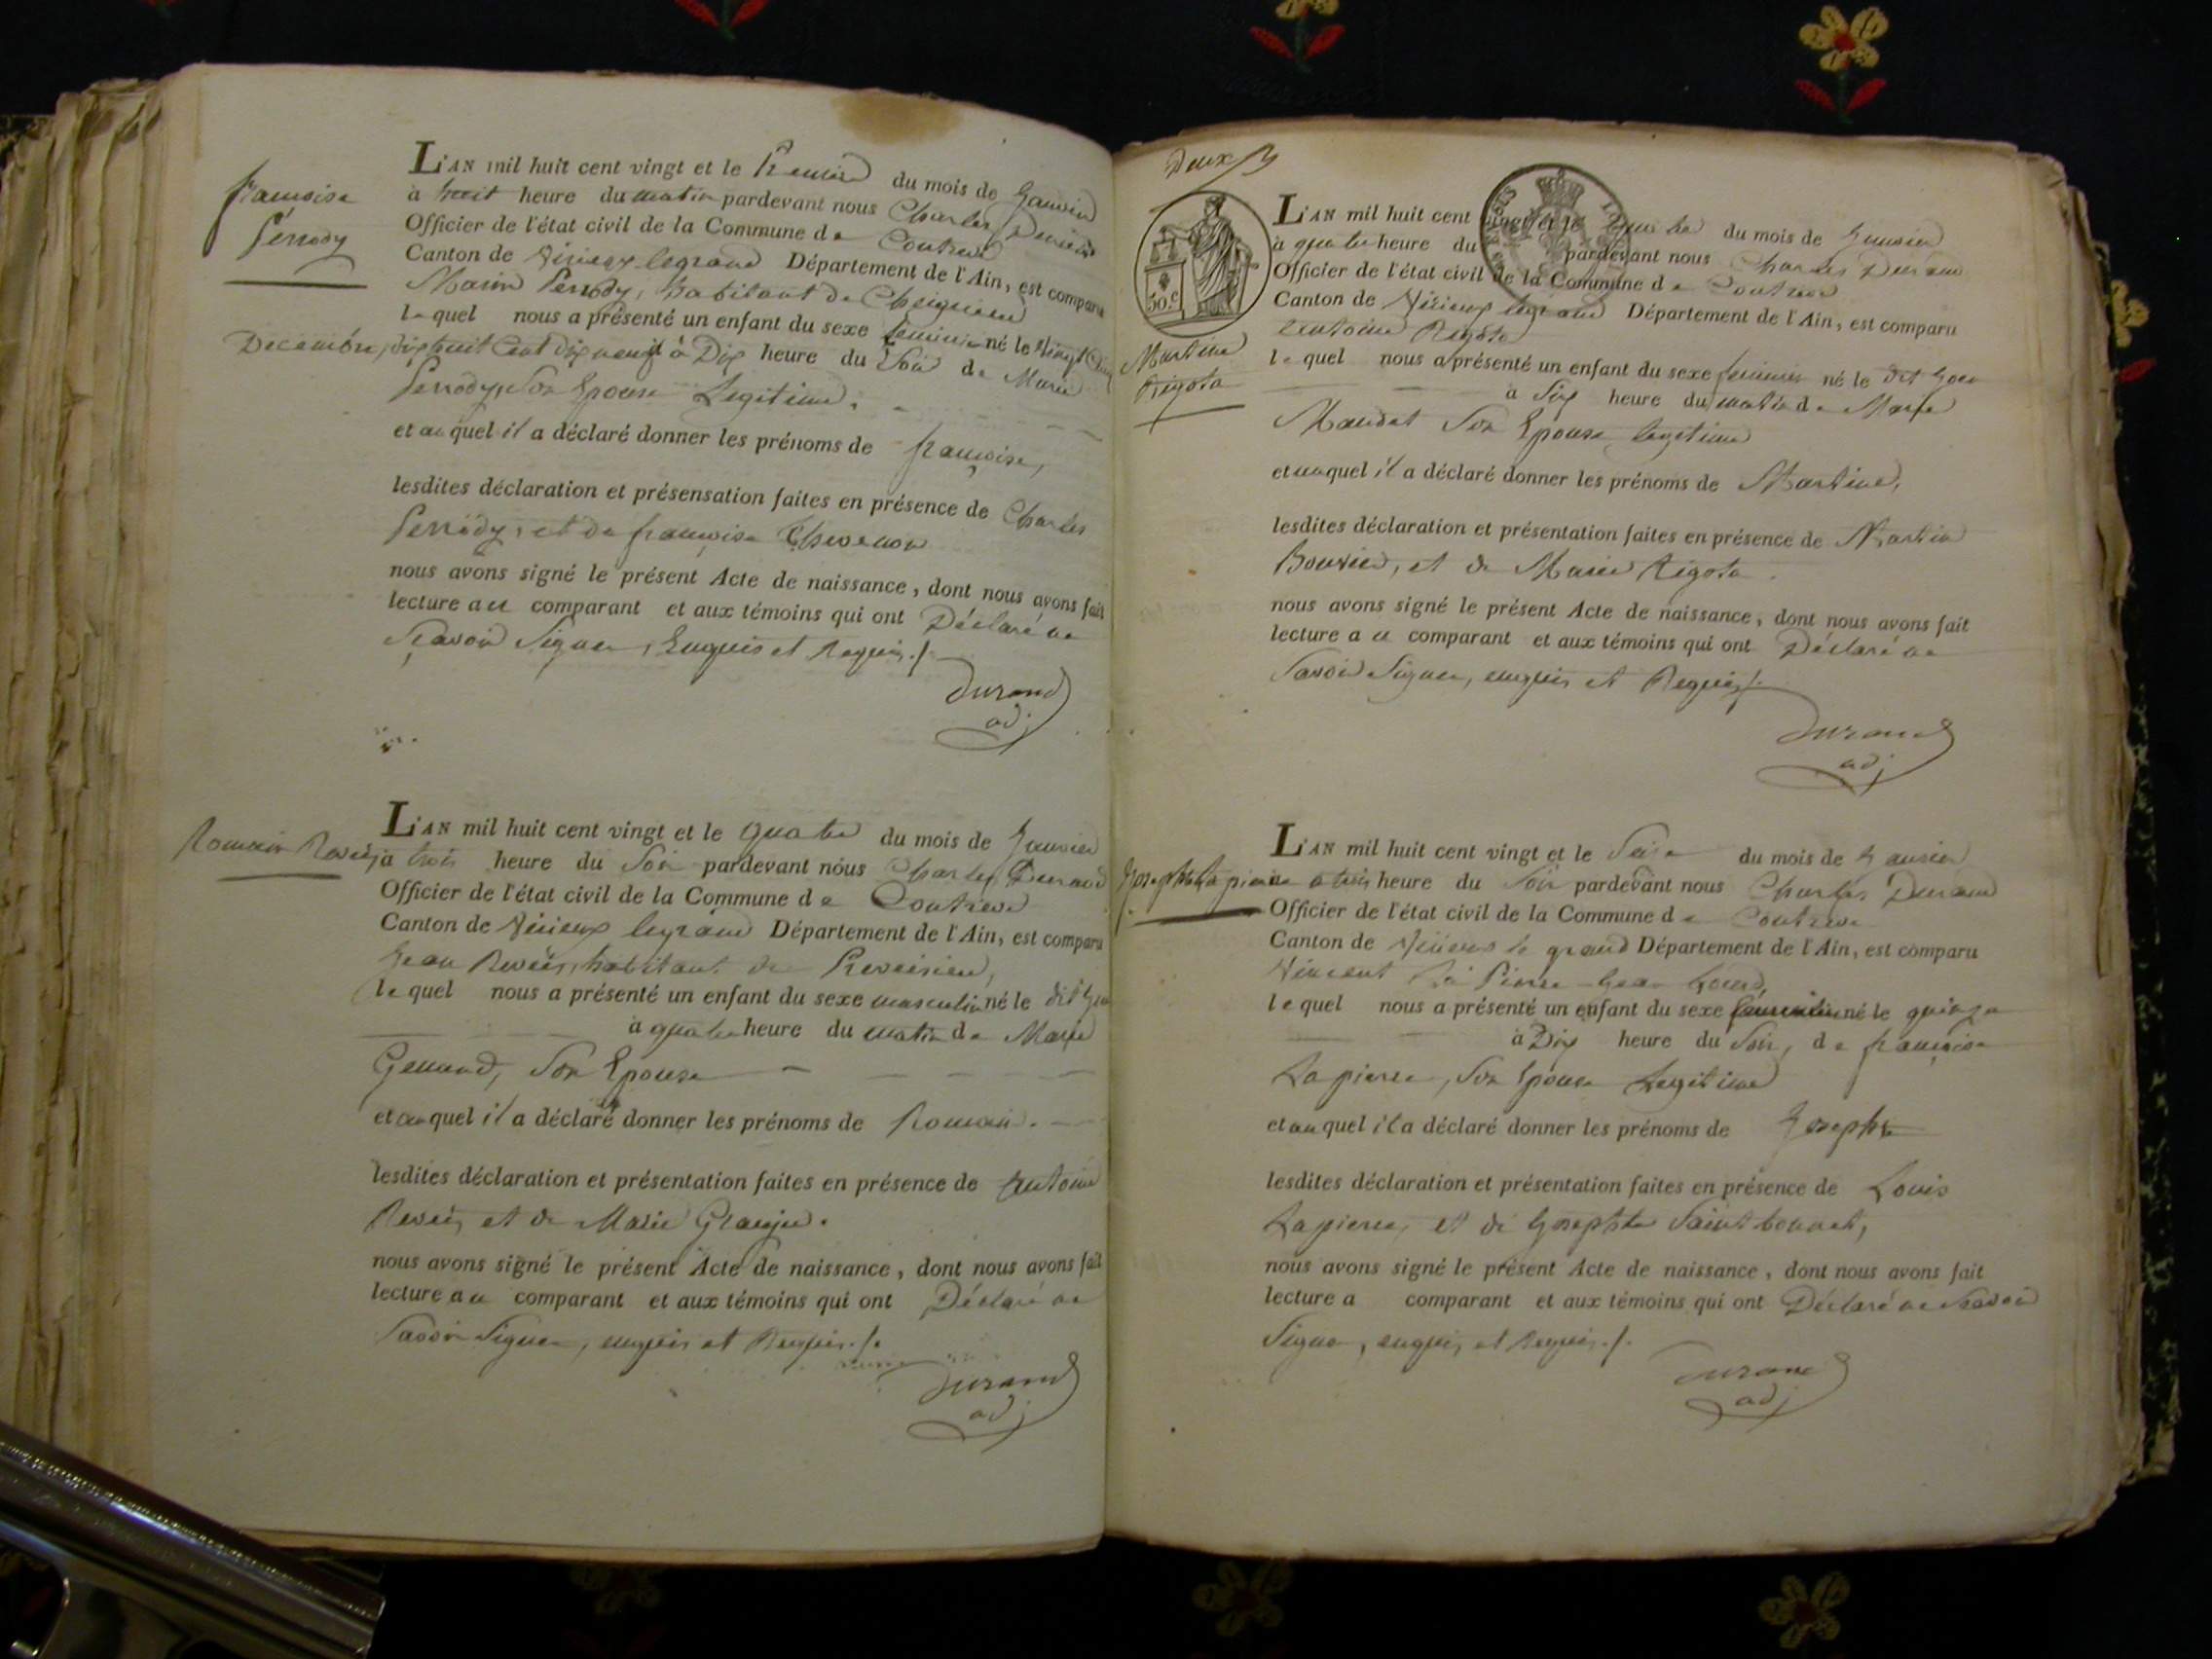 françoise
Perrody
L'AN mil huit cent vingt et le Premier du mois de Janvier
à huit heure du matin pardevant nous Charles Durand
Officier de l'état civil de la Commune de Contrevoz
Canton de Virieux legrand Département de l'Ain, est comparu
Marin Perrody, habitant de
lequel nous a présenté un enfant du sexe feminin né le vingt
Decembre, dixhuit Cent dix neuf à Dix heure du Soir de Marie
Perrody, Son Epouse Legitime.
et auquel il a déclaré donner les prénoms de françoise,
lesdites déclaration et présensation faites en présence de Charles
Perrody, et de françoise Thevenon
nous avons signé le présent Acte de naissance, dont nous avons fait
lecture au comparant et aux témoins qui ont Déclaré ne
Scavoir Signer, Enquis et Requis./.
Durand
adj
Romain
L'AN mil huit cent vingt et le quatre du mois de Janvier
à trois heure du Soir pardevant nous Charles Durand
Officier de l'état civil de la Commune de Contrevoz
Canton de Virieux legrand Département de l'Ain, est comparu
Jean habitant de
lequel nous a présenté un enfant du sexe masculin né le dit jour
à quatre heure du matin de Marie
Son Epouse
et auquel il a déclaré donner les prénoms de Romain.
lesdites déclaration et présentation faites en présence de Antoine
et de Marie
nous avons signé le présent Acte de naissance, dont nous avons fait
lecture au comparant et aux témoins qui ont Déclaré ne
Savoir Signer, enquis et Requis./.
Durand
adj
Deux
50.c
Martine
Rigota
L'AN mil huit cent vingt et le du mois de Janvier
à quatre heure du pardevant nous Charles Durand
Officier de l'état civil de la Commune de Contrevoz
Canton de Virieux legrand Département de l'Ain, est comparu
Antoine Rigota
lequel nous a présenté un enfant du sexe feminin né le dit jour
à Six heure du matin de Marie
Son Epouse legitime
et auquel il a déclaré donner les prénoms de Martine,
lesdites déclaration et présentation faites en présence de Martin
Bouvier, et de Marie Rigota.
nous avons signé le présent Acte de naissance, dont nous avons fait
lecture au comparant et aux témoins qui ont Déclaré ne
Savoir Signer, enquis et Requis./.
Durand
adj
Josephte Lapierre
L'AN mil huit cent vingt et le Seize du mois de Janvier
a trois heure du Soir pardevant nous Charles Durand
Officier de l'état civil de la Commune de Contrevoz
Canton de Virieux le grand Département de l'Ain, est comparu
Vincent
lequel nous a présenté un enfant du sexe feminin né le quinze
à Dix heure du Soir, de françoise
Lapierre, Son Epouse Legitime
et auquel il a déclaré donner les prénoms de Josephte
lesdites déclaration et présentation faites en présence de Louis
Lapierre, et de Josephte Saint bonnet,
nous avons signé le présent Acte de naissance, dont nous avons fait
lecture a comparant et aux témoins qui ont Déclaré ne Scavoir
Signer, enquis, et Requis./.
Durand
adj